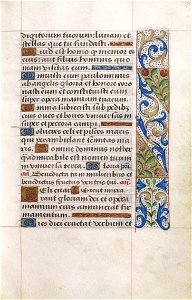 digitorum tuorum: lunam et
stellas que tu fundasti.
Quid est homo quod memor es
eius: aut filius hominis quo
niam visitas eum.
Minuisti eum paulominus
ab angelis gloria et honore
coronasti eum et constituisti eum
super opera manuum tuarum.
Omnia subiecisti sub pedib
eius oves et boves universas
insuper et pecora campi.
Volucres celi et pisces maris
qui perambulant semitas ma
ris. Domine dominus noster
q admirabile est nomen tuum
in universa terra.
Benedicta tu in mulieribus et
benedictus fructus ventris tui.
Celi enar
rant gloriam dei et opera
manuum eius annunciat fir
mamentum.
Dies diei eructat verbum et